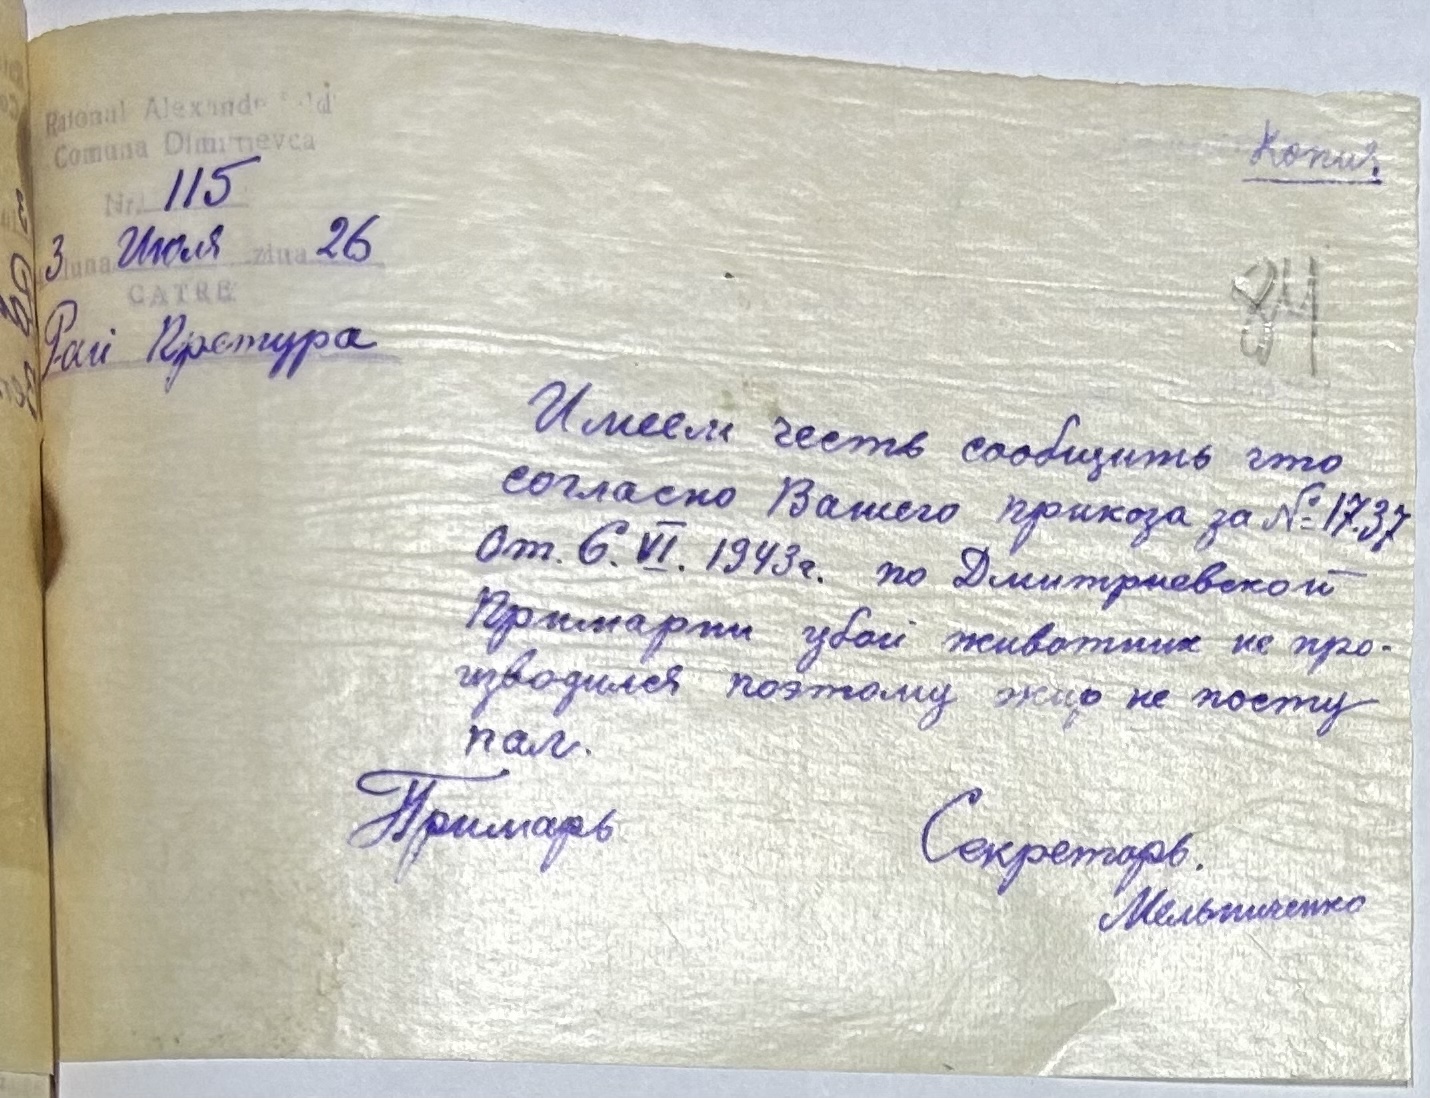 Raionul Alexanderfeld
Comuna Dimitrievca
Копия.
Nr. 115
3 luna Июля ziua 26
CATRE
84
Рай Претура
Имеем честь сообщить что
согласно Вашего прикоза за №17.37
От. 6. VI. 1943г. по Дмитриевской
Примарии убой животних не про-
изводился поэтому жир не посту
пал.
Примарь
Секретарь.
Мельниченко